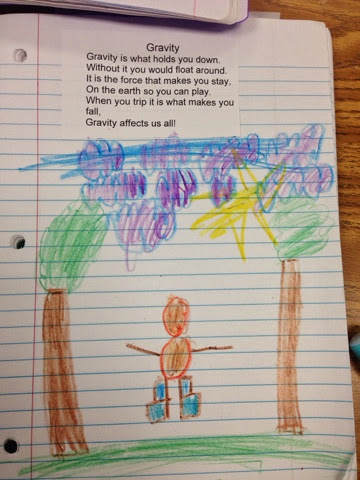 Gravity
Gravity is what holds you down.
Without it you would float around.
It is the force that makes you stay,
On the earth so you can play.
When you trip it is what makes you
fall,
Gravity affects us all!